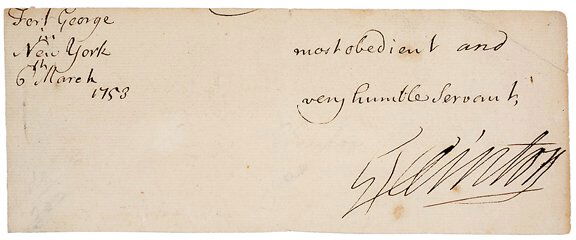 Fort George
in
New York
6th March
1753
most obedient and
very humble Servant,
GClinton